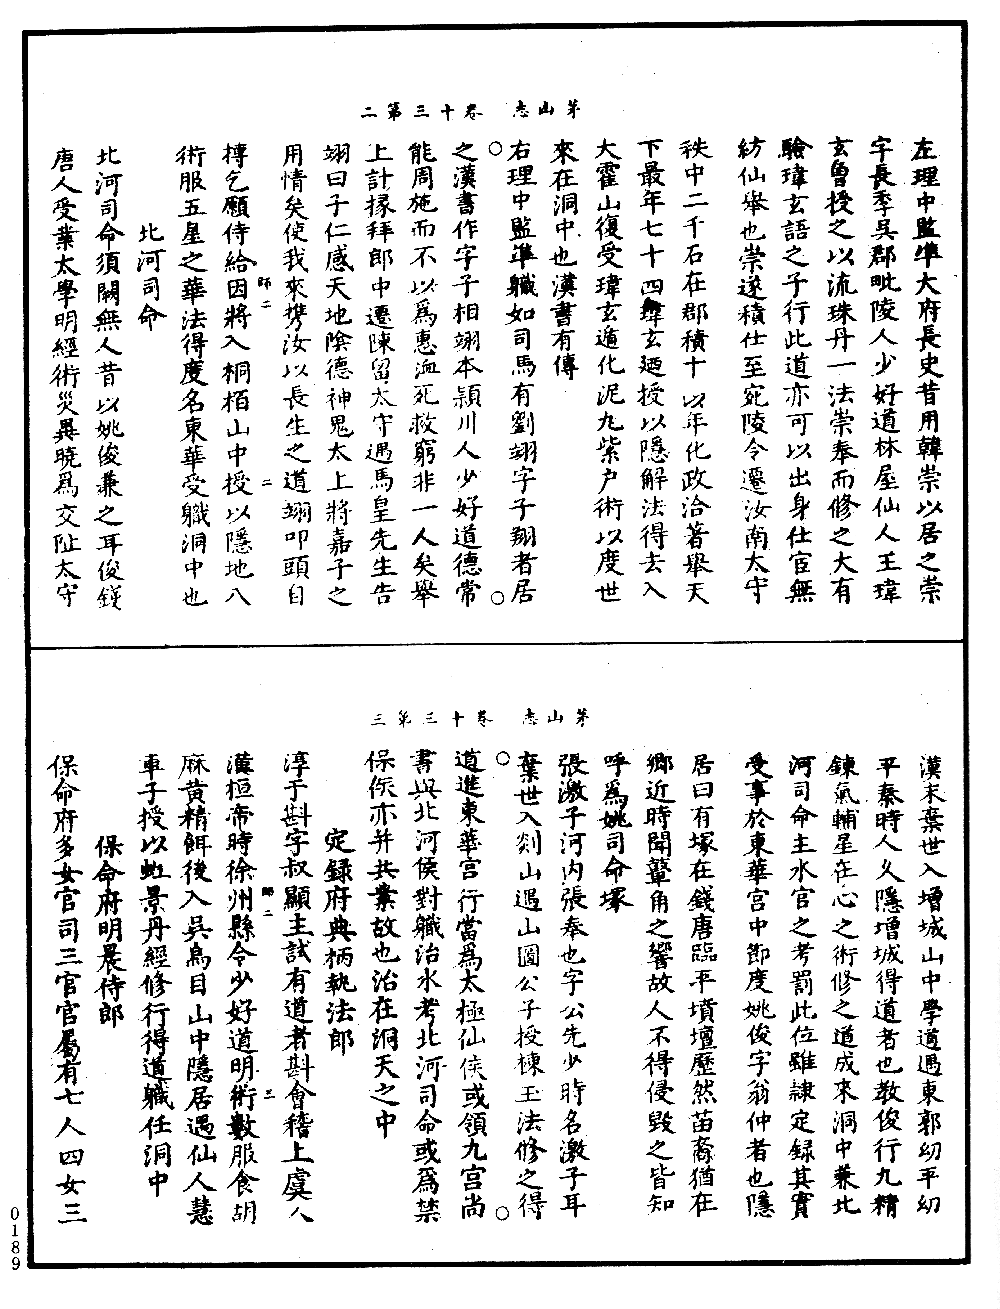 茅山志　卷十三第二
左理中監準大府長史昔用韓崇以居之崇
字長季吳郡毗陵人少好道林屋仙人王瑋
玄曾授之以流珠丹一法崇奉而修之大有
驗瑋玄語之子行此道亦可以出身仕宦無
紡仙舉也崇遂積仕至宛陵令遷汝南太守
秩中二千石在郡積十以年化政洽著舉天
下最年七十四瑋玄廼授以隱解法得去入
大霍山復受瑋玄遁化泥丸紫戶術以度世
來在洞中也漢書有傳
右理中監準職如司馬有劉翊字子翔者居
之漢書作字子相翊本潁川人少好道德常
能周施而不以爲惠恤死救窮非一人矣舉
上計掾拜郎中遷陳留太守遇馬皇先生告
翊曰子仁感天地陰德神鬼太上將嘉子之
用情矣使我來携汝以長生之道翊叩頭自
搏乞願侍給因將入桐栢山中授以隱地八
術服五星之華法得度名東華受職洞中也
北河司命
北河司命須闕無人昔以姚俊兼之耳俊錢
唐人受業太學明經術災異曉爲交阯太守
師二
二
茅山志　卷十三第三
漢末棄世入增城山中學道遇東郭幼平幼
平秦時人久隱增城得道者也教俊行九精
鍊氣輔星在心之術修之道成來洞中兼北
河司命主水官之考罰此位雖隷定録其實
受事於東華宮中節度姚俊字翁仲者也隱
居曰有塚在錢唐臨平墳壇歷然苗裔猶在
鄉近時聞鼙角之響故人不得侵毀之皆知
呼爲姚司命塚
張激子河内張奉也字公先少時名激子耳
棄世入剡山遇山圖公子授棟玉法修之得
道進東華宮行當爲太極仙侯或領九宮尚
書與北河侯對職治水考北河司命或爲禁
保侯亦并共業故也治在洞天之中
定録府典柄執法郎
淳于斟字叔顯主試有道者斟會稽上虞人
漢桓帝時徐州縣令少好道明術數服食胡
麻黄精餌後入吳烏目山中隱居遇仙人慧
車子授以虹景丹經修行得道職任洞中
保命府明晨侍郎
保命府多女官司三官官屬有七人四女三
師二
三
0189